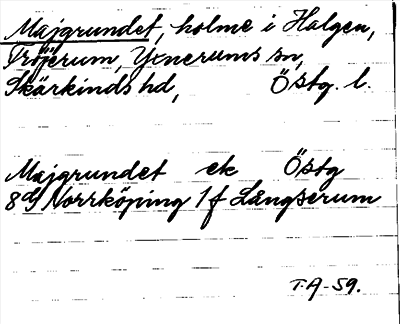 Majgrundet, holme i Halgen,
Fröjerum, Yxnerums sn,
Skärkinds hd, Östg. l.
Majgrundet ek Östg
8d Norrköping 1f Långserum
T.A-59.